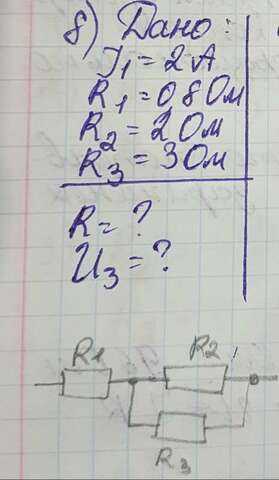 8) Дано:
I₁ = 2 А
R₁ = 0,8 Ом
R₂ = 2 Ом
R₃ = 3 Ом
R = ?
U₃ = ?
R1 R2
R3